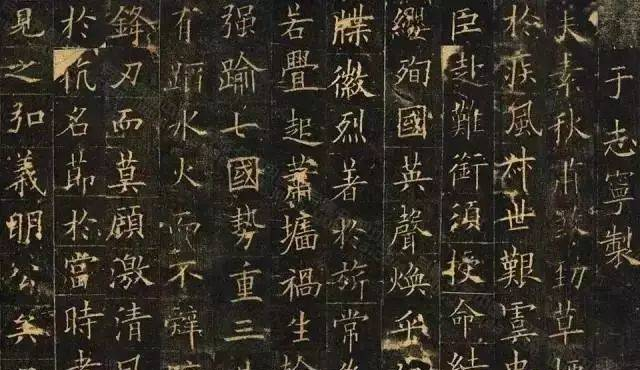 于志寧製
夫素秋肅煞勁草
於疾風叔世艱虞
臣赴難銜須授命結
纓殉國英聲煥乎
牒徽烈著於旂常
若舋起蕭墻禍生
强踰七國勢重三
有蹈水火而不辭
鋒刃而莫顧激清
於抗名節於當時者
見之弘義明公矣